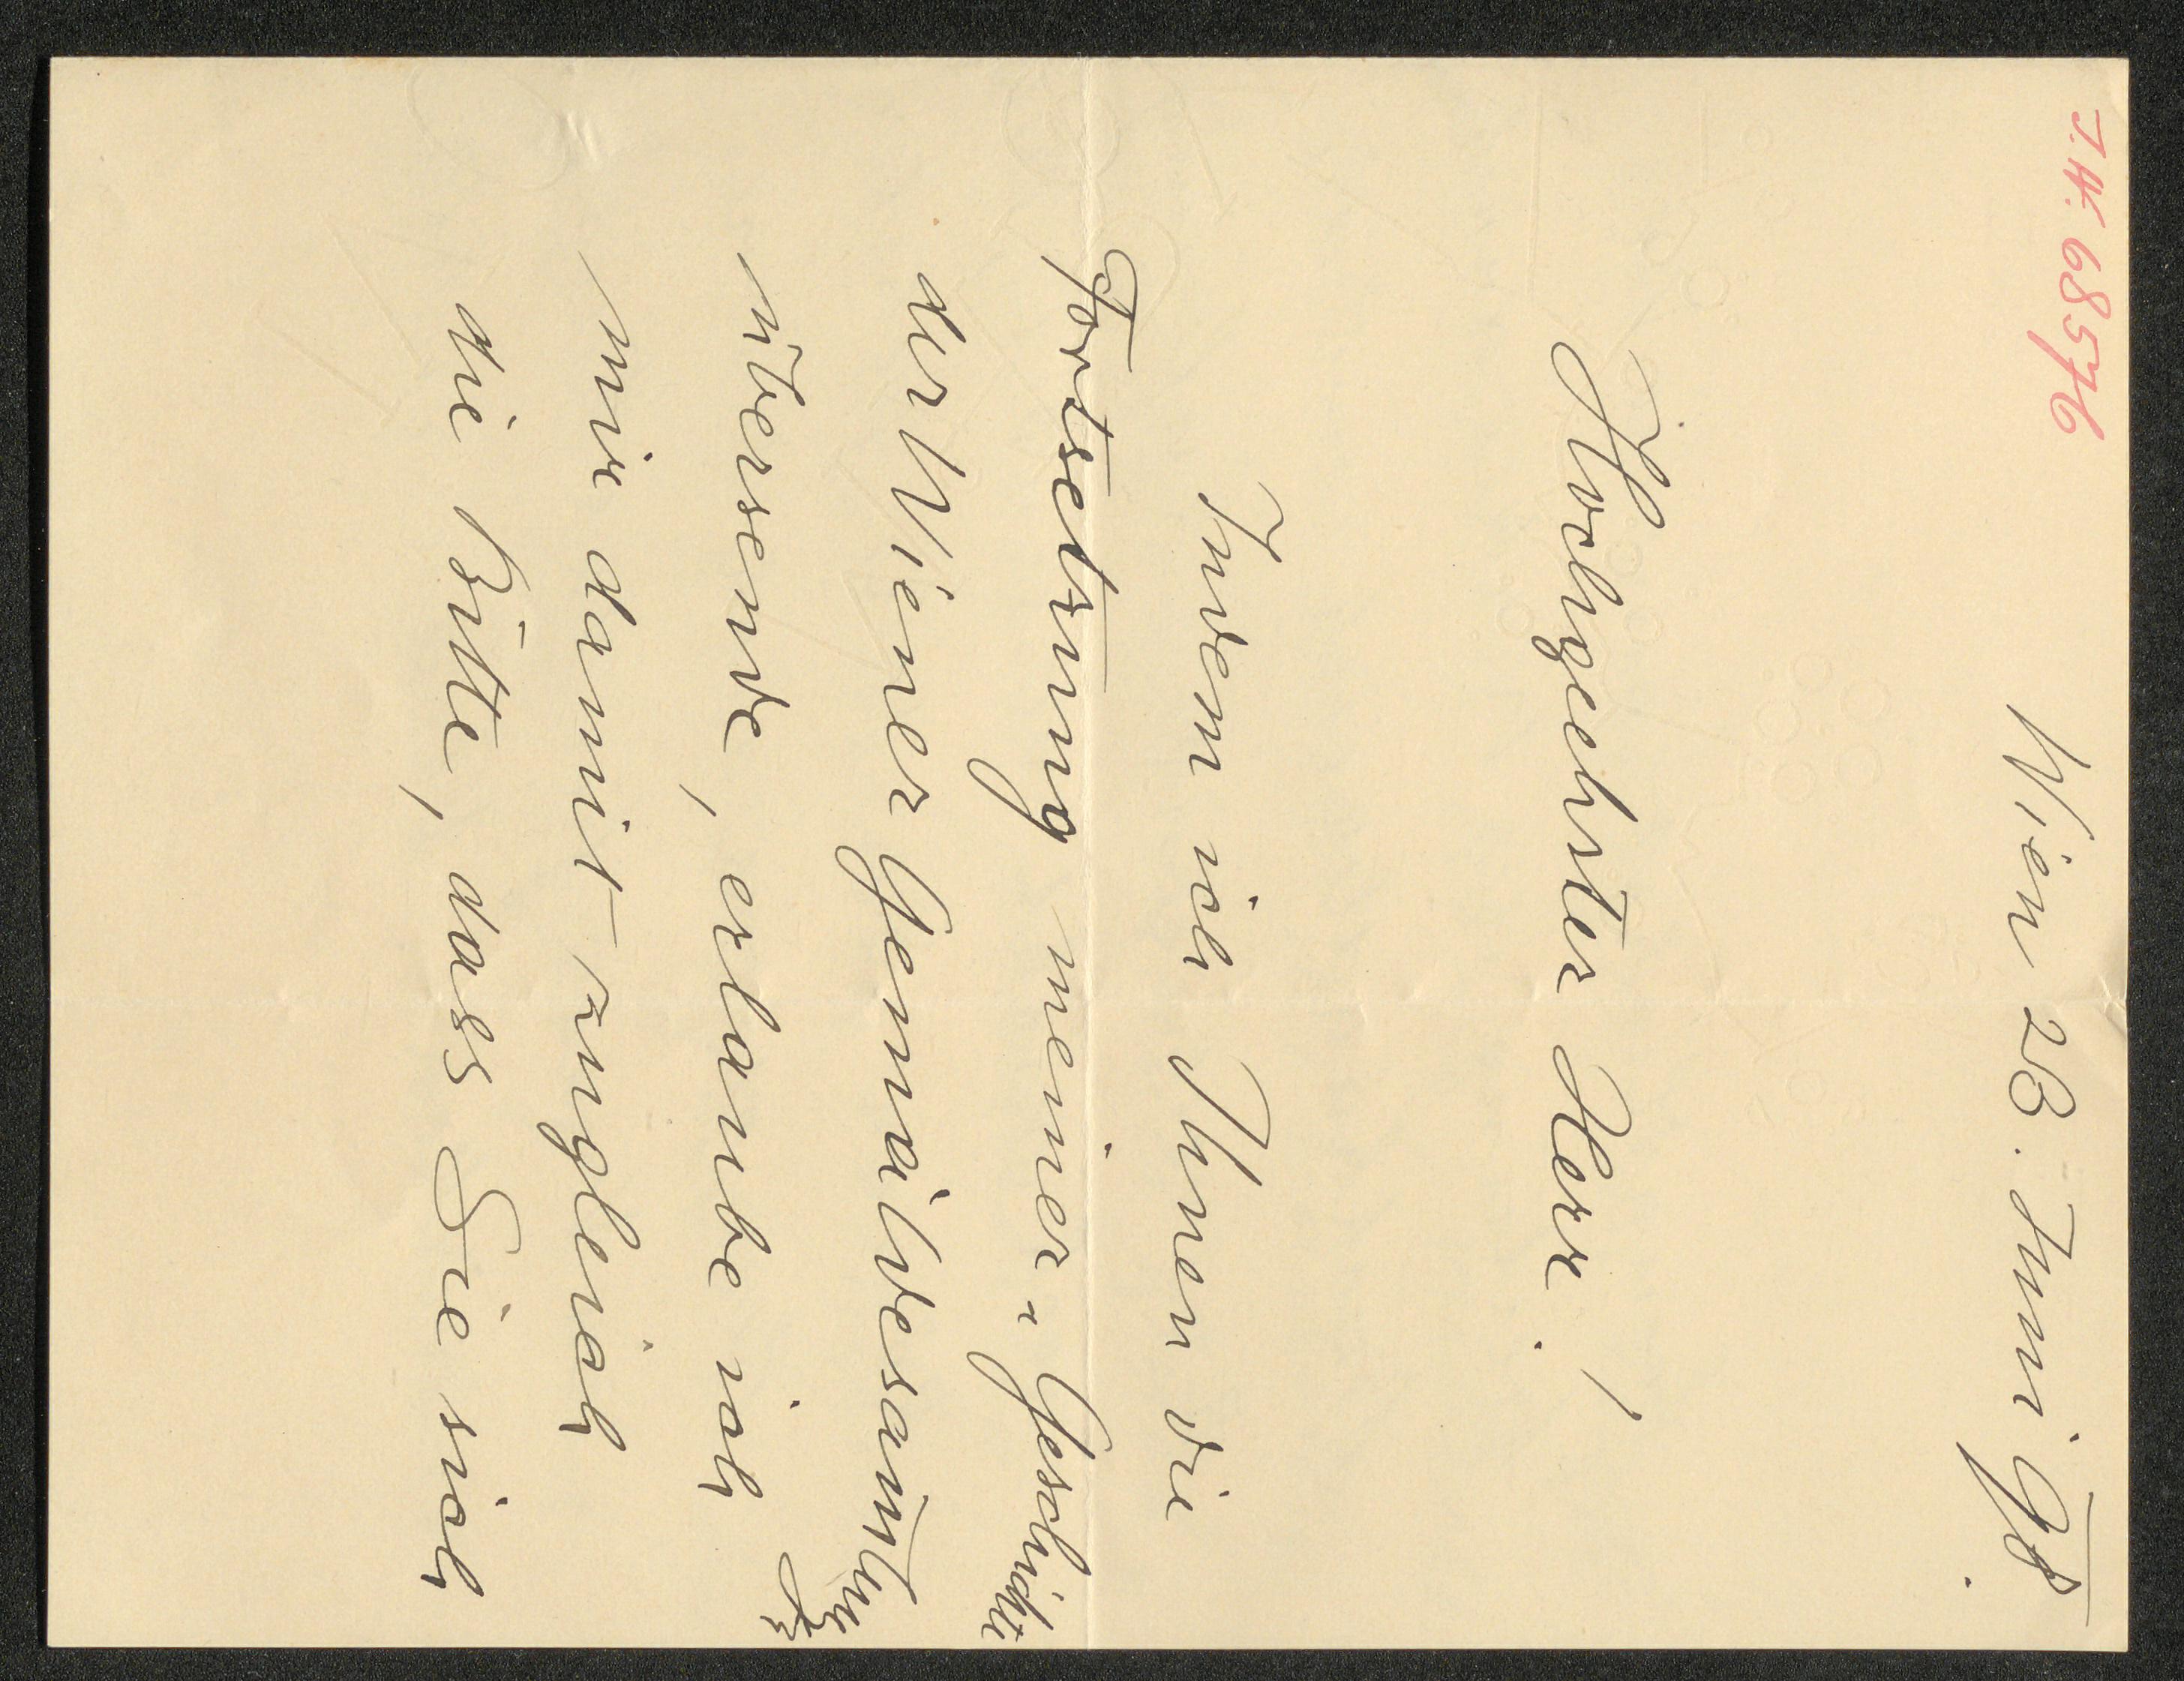 J.N. 68576
Wien 23. Juni 98.
Hochgeehrter Herr!
Indem ich Ihnen die
Fortsetzung meiner „Geschichte
der Wiener Gemäldesammlungen“
übersende, erlaube ich
mir damit zugleich
die Bitte, dass Sie sich